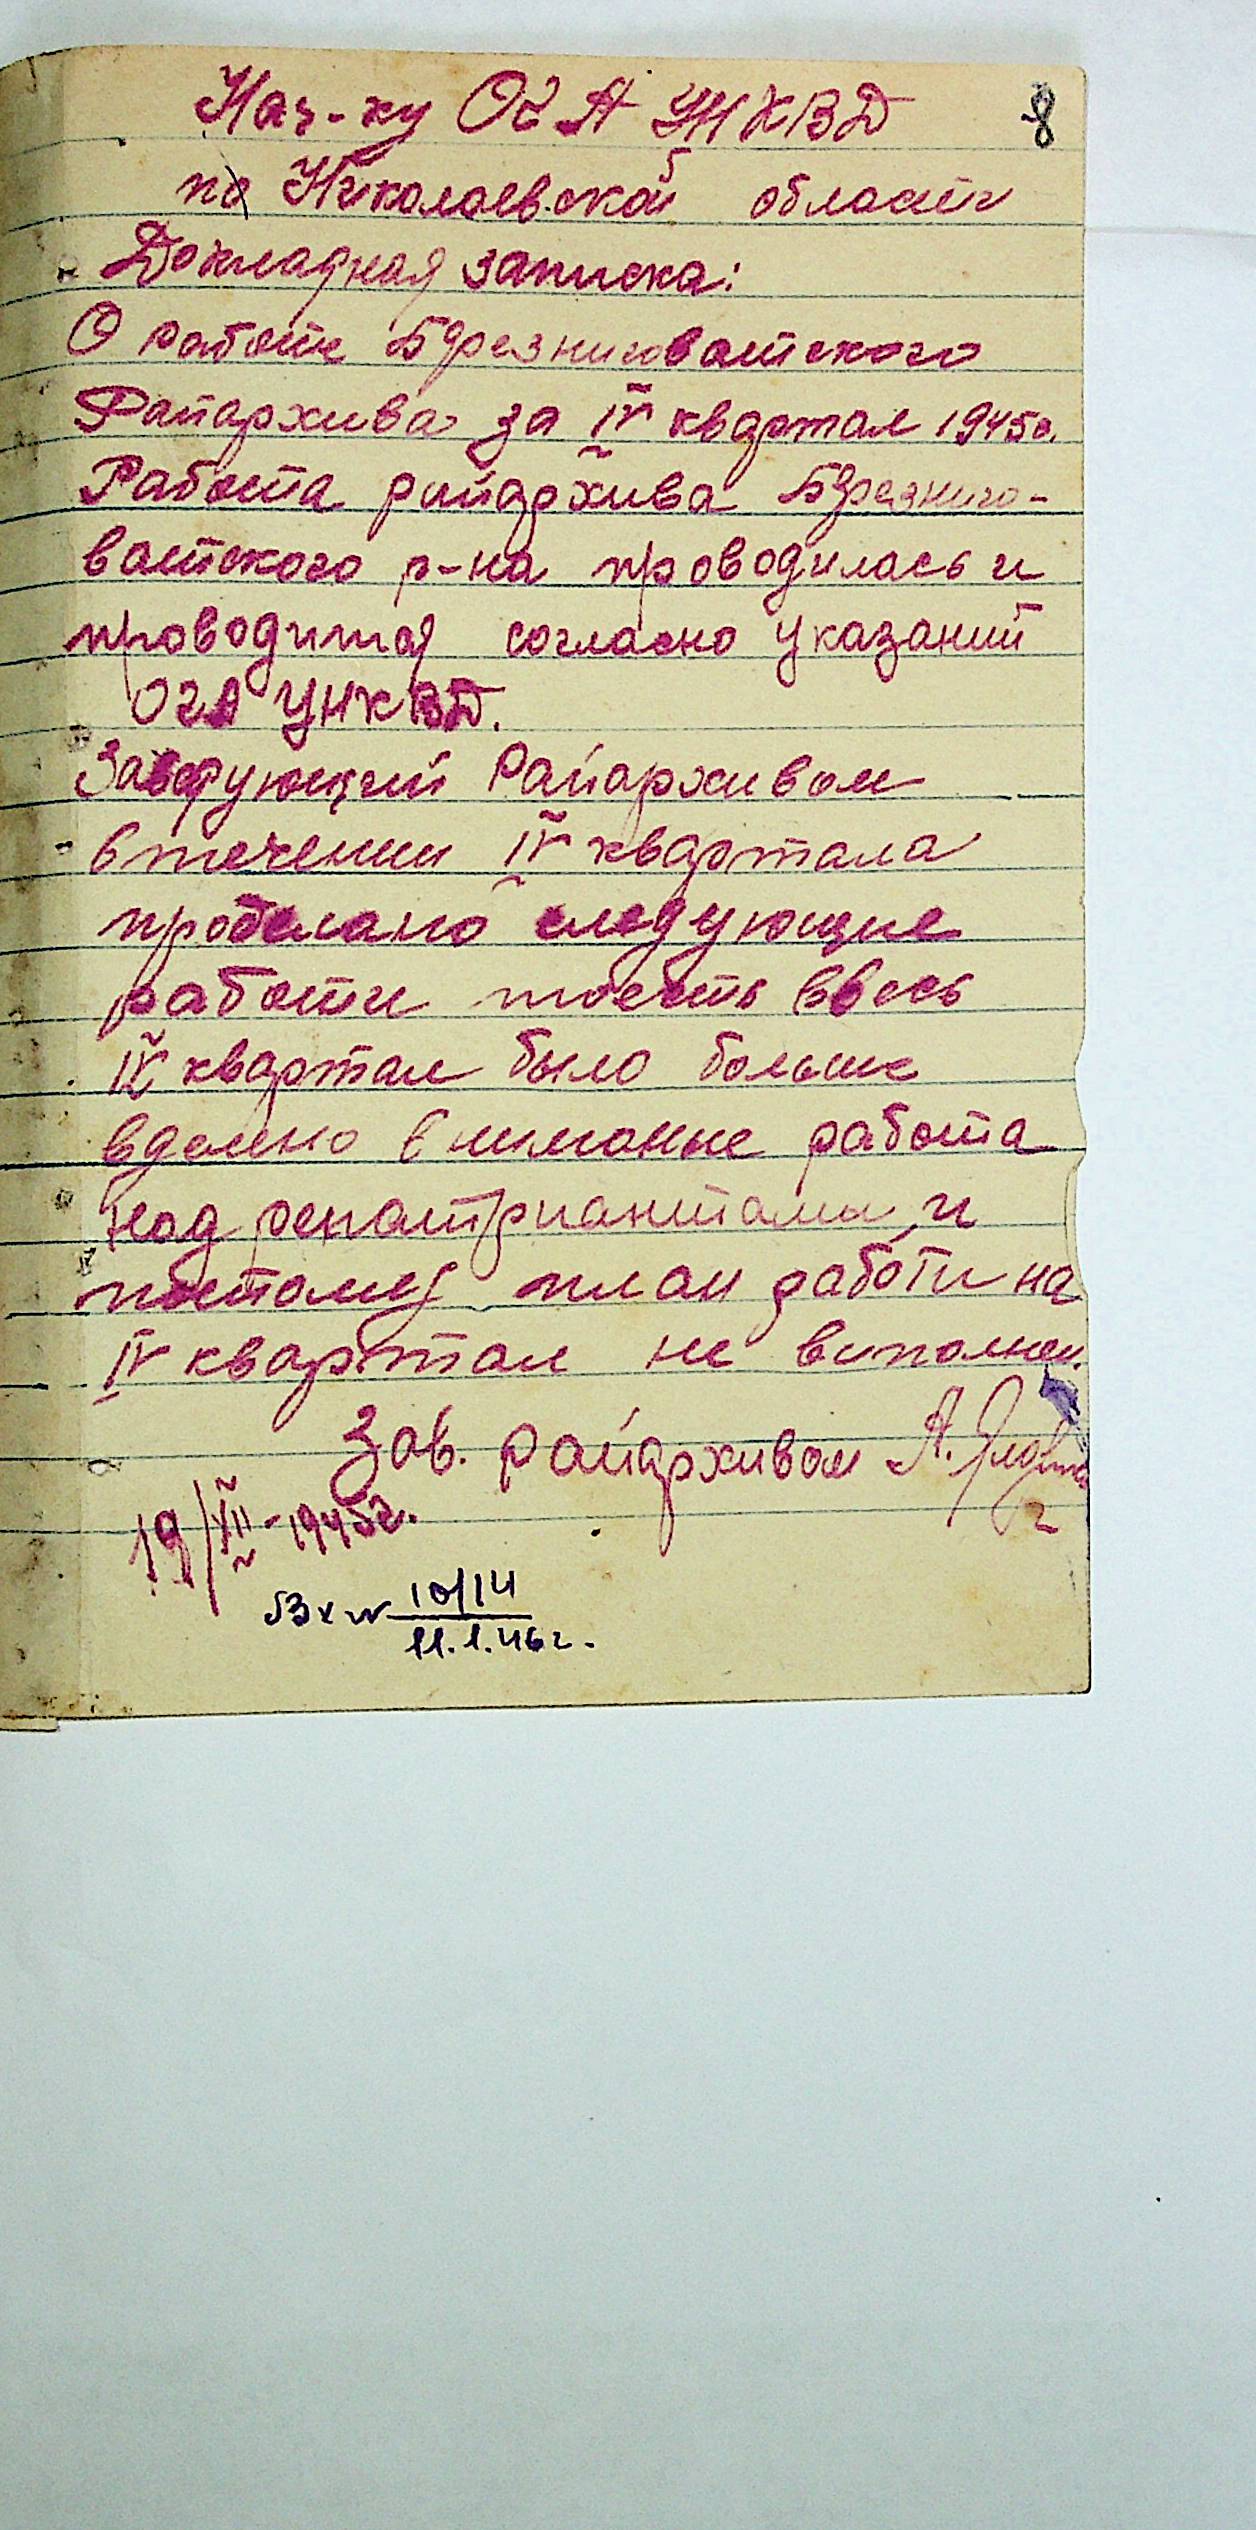 Нач-ку ОГА УНКВД
8
по Николаевской области
Докладная записка:
О работе Брезниговатского
Райархива за IV квартал 1945г.
Работа райархива Брезниго-
ватского р-на проводилась и
проводится согласно указаний
ОГА УНКВД.
Заведующий Райархивом
втечении IV квартала
проделано следующие
работи тоесть ввесь
IV квартал было больше
вделено внимание работа
над репатриантами и
поетому план работи на
IV квартал не виполнен.
Зав. райархивом А.
19/XII-1945г.
Вх № 10/14
11.1.46г.